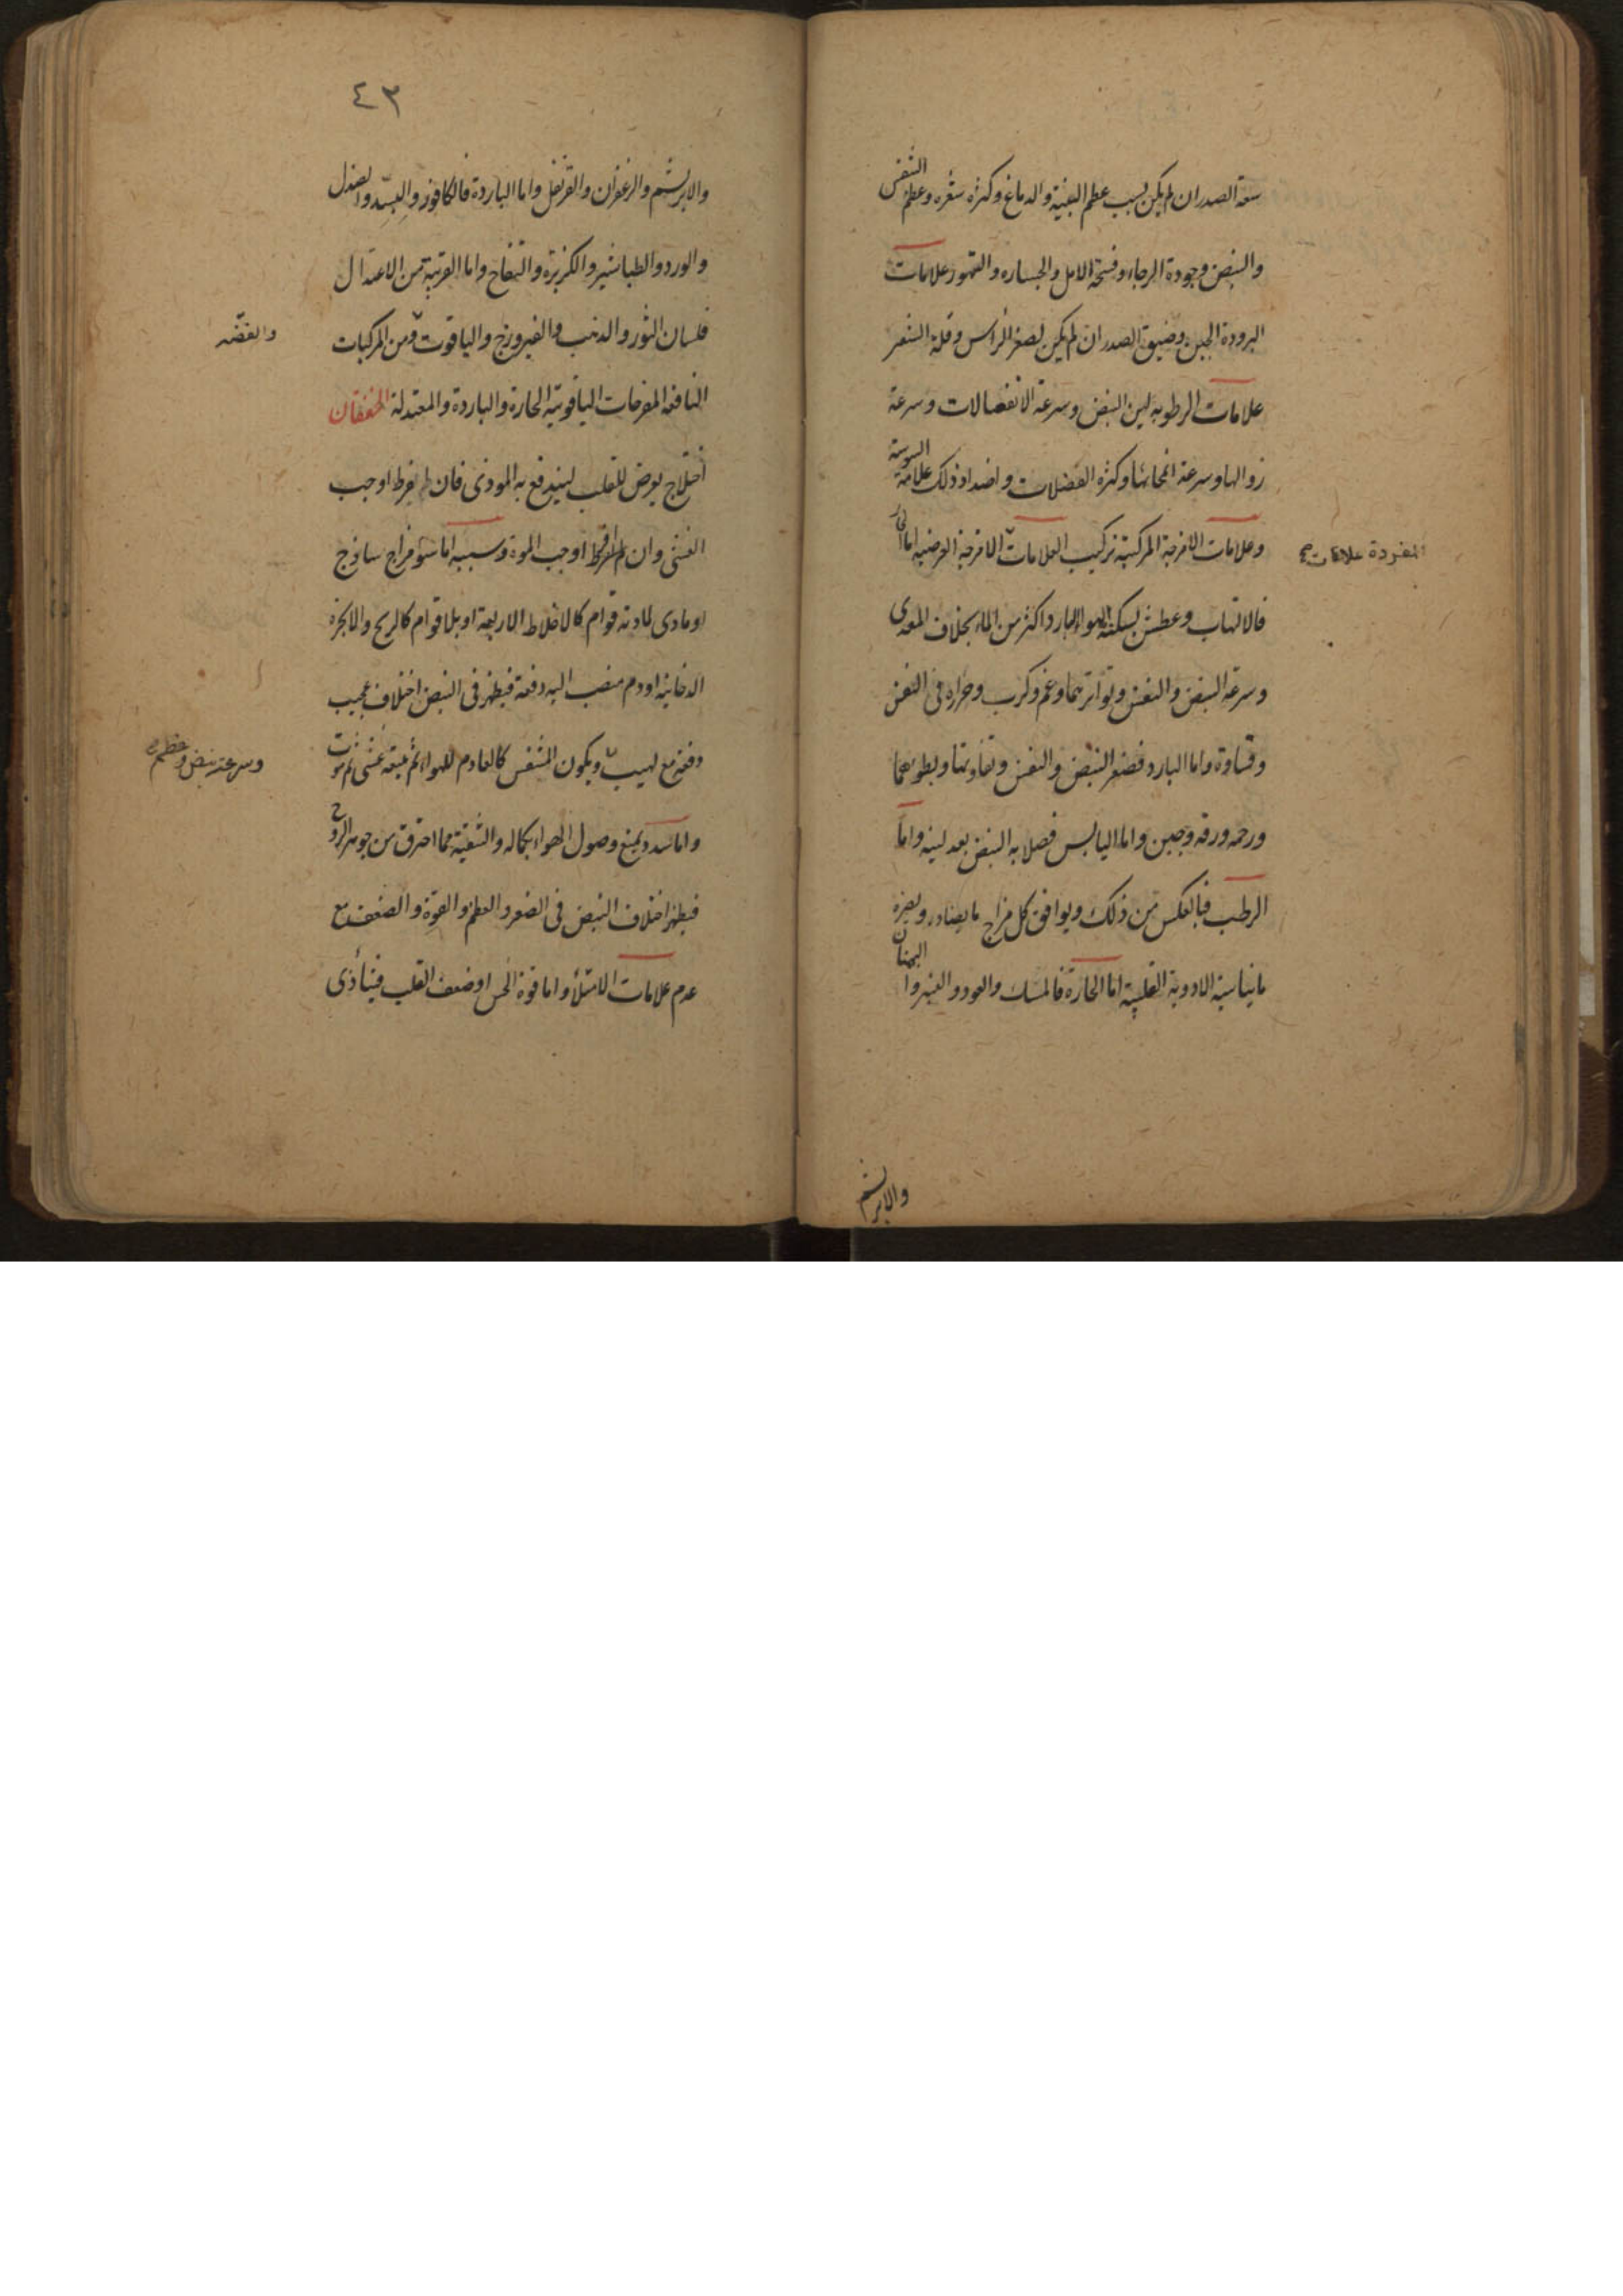 سعة الصدر ان لم يكن بسبب عظم البنية والدماغ وكثرة شعره وعظم التنفس
والنبض وجودة الرجاء وفسحة الامل والجساره والتهور علامات
البرودة الجبن وضيق الصدر ان لم يكن لصغر الراس وقلة الشعر
علامات الرطوبه لين النبض وسرعة الانفعالات وسرعة
زوالها وسرعة انمحائها وكثرة الفضلات واضداد ذلك علامة اليبوسة
وعلامات الامزجة المركبة تركيب العلامات الامزجة العرضيه اما الحار
المفردة علامات صح
فالالتهاب وعطش يسكنه الهواء البارد اكثر من الماء بخلاف المعدى
وسرعة النبض والنفس وتواترهما وغم وكرب وحراره فى النفس
وقساوة واما البارد فصغر النبض والنفس وتفاوتهما وبطوءهما
ورحمه ورقه وجبن واما اليابس فصلابه النبض بعد لينه واما
الرطب فبالعكس من ذلك ويوافق كل مزاج ما يضاده ويضره
ما يناسبه الادوية القلبية اما الحارة فالمسك والعود والعنبر والبهمنان
والابريشم
٤٣
والابريشم والزعفران والقرنفل واما الباردة فالكافور والبسد والصندل
والورد والطباشير والكزبرة والتفاح واما القريبة من الاعتدال
فلسان الثور والذهب والفيروزج والياقوت ومن المركبات
والفضه
النافعه المفرحات الياقوتية الحارة والباردة والمعتدلة الخفقان
اختلاج يعرض للقلب ليندفع به الموذى فان لم يفرط اوجب
الغشى وان افرط اوجب الموت وسببه اما سوء مزاج ساذج
او مادى لمادته قوام كالاخلاط الاربعة او بلا قوام كالريح والابخرة
الدخانية او دم منصب اليه دفعة فيظهر فى النبض اختلاف عجيب
دفعة مع لهيب ويكون المتنفس كالعادم للهواء ثم يتبعه غشى ثم موت
وسرعة نبض وعظم صح
واما سدد يمنع وصول الهواء بكماله والتنقية مما احترق من جوهر الروح
فيظهر اختلاف النبض فى الصغر والعظم والقوة والضعف مع
عدم علامات الامتلاء واما قوة الحس او ضعف القلب فيتأذى